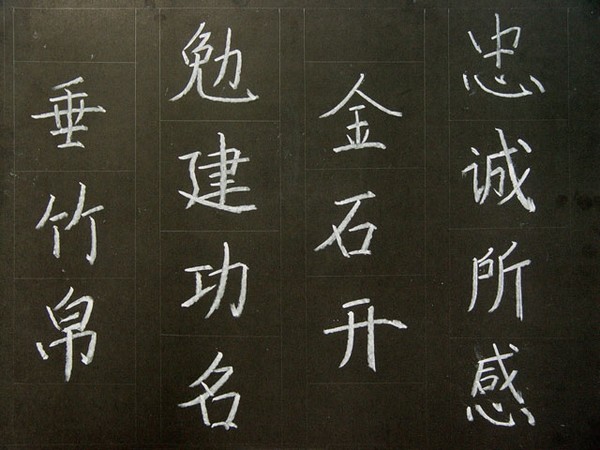 忠诚所感
金石开
勉建功名
垂竹帛